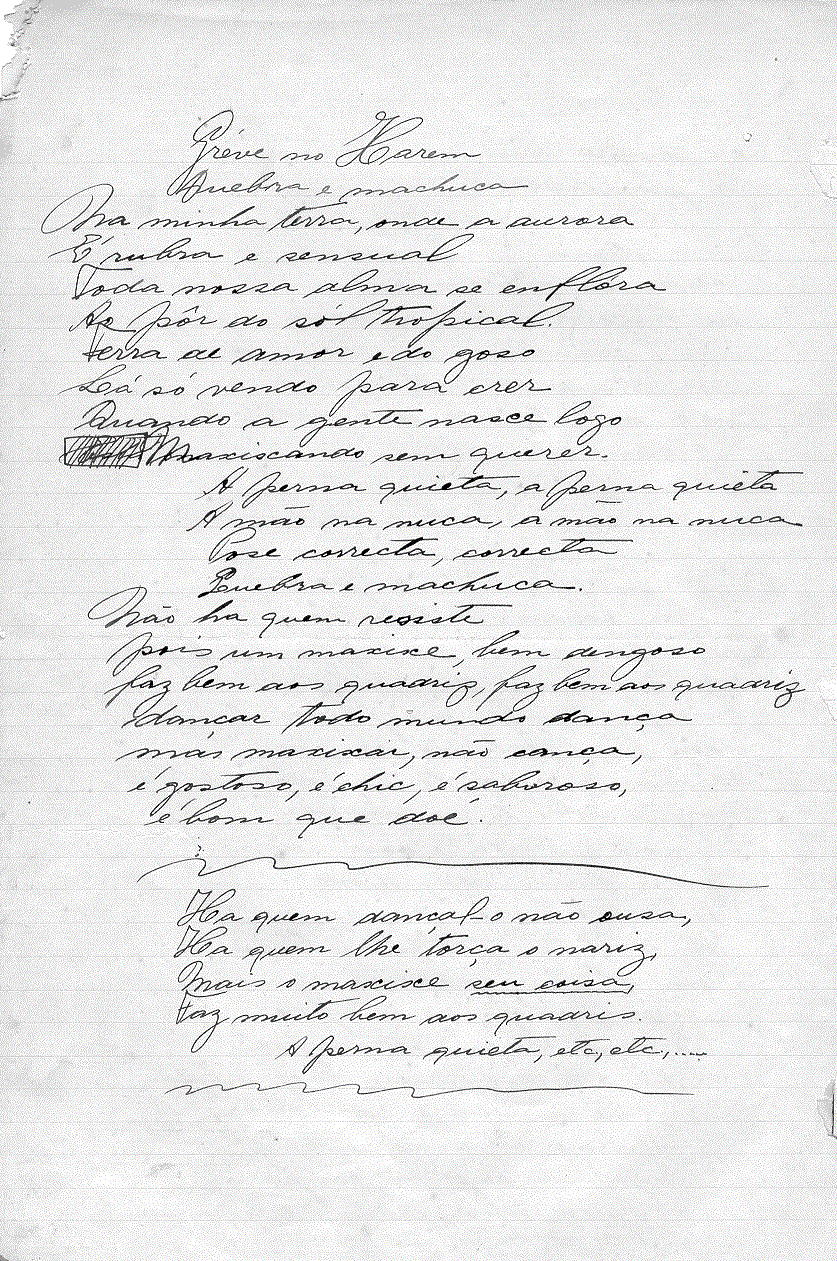 Gréve no Harem
Quebra e machuca
Na minha terra, onde a aurora
É rubra e sensual
Toda nossa alma se enflóra
Ao pôr do sól tropical.
Terra de amor e do goso
Lá só vendo para crer
Quando a gente nasce logo
Maxiscando sem querer.
A perna quieta, a perna quieta
A mão na nuca, a mão na nuca
Pose correcta, correcta
Quebra e machuca.
Não ha quem resiste
pois um maxixe, bem dengoso
faz bem aos quadriz, faz bem aos quadriz
dancar todo mundo dança
más maxixar, não cança,
é gostoso, é chic, é saboroso,
é bom que doé.
Ha quem dançal-o não ousa,
Ha quem lhe torça o nariz,
Mais o maxixe seu coisa,
Faz muito bem aos quadris.
A perna quieta, etc, etc,.....